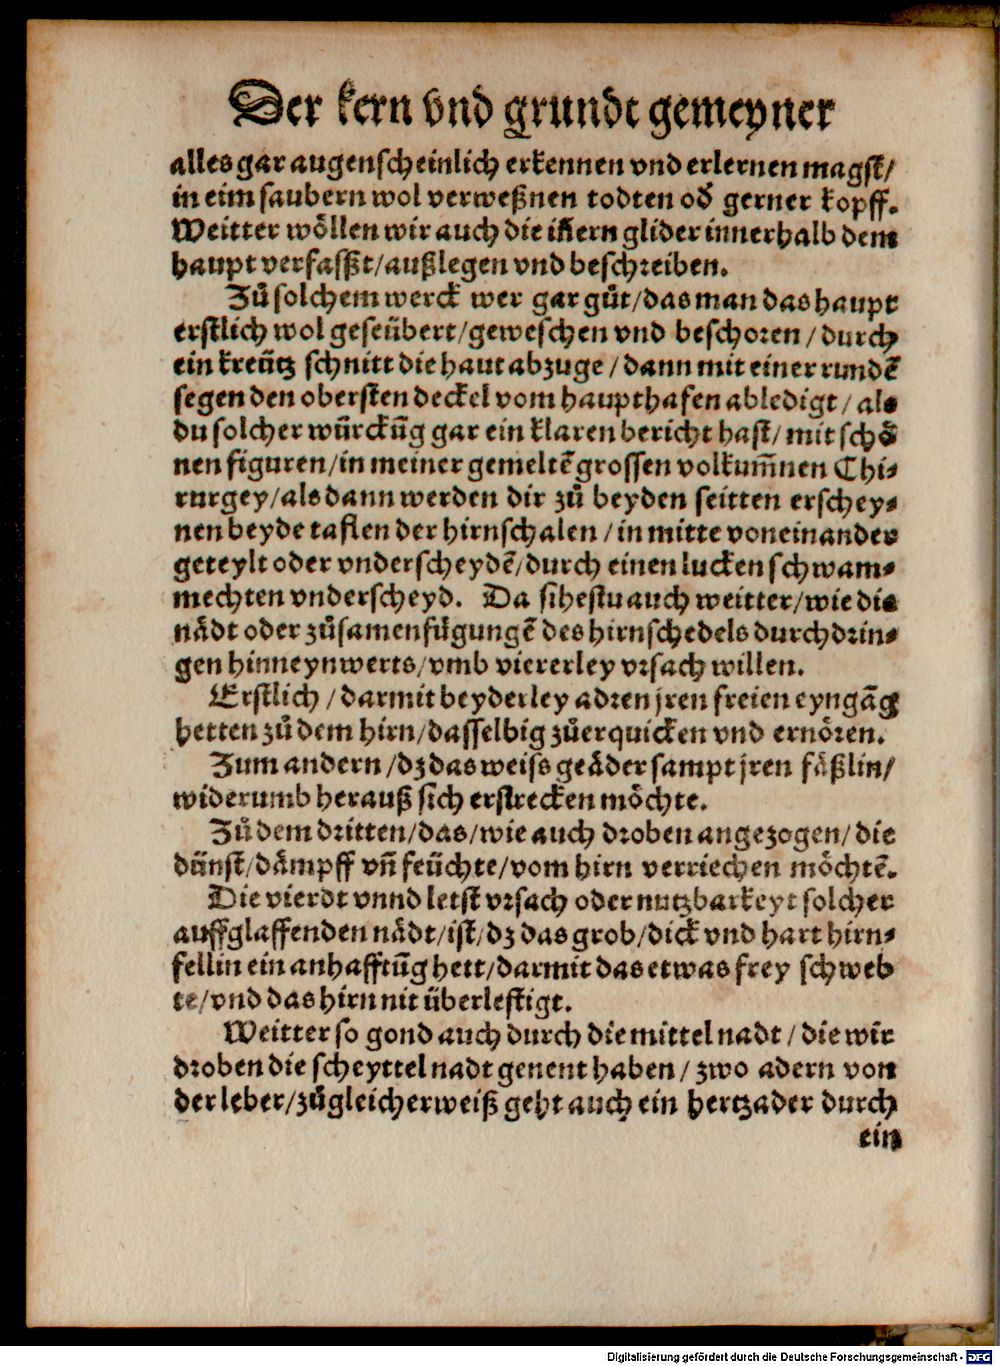 Der kern vnd grundt gemeyner
alles gar augenscheinlich erkennen vnd erlernen magst/
in eim saubern wol verweßnen todten od̕ gerner kopff.
Weitter wöllen wir auch die iñern glider innerhalb dem
haupt verfasszt/außlegen vnd beschreiben.
Zů solchem werck wer gar gůt/das man das haupt
erstlich wol geseübert/geweschen vnd beschoren/durch
ein kreütz schnitt die haut abzuge/dann mit einer rundē
segen den obersten deckel vom haupthafen abledigt/als
du solcher würckūg gar ein klaren bericht hast/mit schö
nen figuren/in meiner gemeltē grossen volkum̃nen Chi-
rurgey/als dann werden dir zů beyden seitten erschey-
nen beyde taflen der hirnschalen/in mitte voneinander
geteylt oder vnderscheydē/durch einen lucken schwam-
mechten vnderscheyd. Da sihestu auch weitter/wie die
nädt oder zůsamenfügungē des hirnschedels durchdrin-
gen hinneynwerts/vmb viererley vrsach willen.
Erstlich/darmit beyderley adren jren freien eyngāg
hetten zů dem hirn/dasselbig zůerquicken vnd ernören.
Zum andern/dz das weiss geäder sampt jren fäßlin/
widerumb herauß sich erstrecken möchte.
Zů dem dritten/das/wie auch droben angezogen/die
dünst/dämpff vñ feüchte/vom hirn verriechen möchtē.
Die vierdt vnnd letst vrsach oder nutzbarkeyt solcher
auffglaffenden nädt/ist/dz das grob/dick vnd hart hirn-
fellin ein anhafftūg hett/darmit das etwas frey schweb
te/vnd das hirn nit überlestigt.
Weitter so gond auch durch die mittel nadt/die wir
droben die scheyttel nadt genent haben/zwo adern von
der leber/zůgleicherweiß geht auch ein hertzader durch
ein
Digitalisierung gefördert durch die Deutsche Forschungsgemeinschaft - DFG